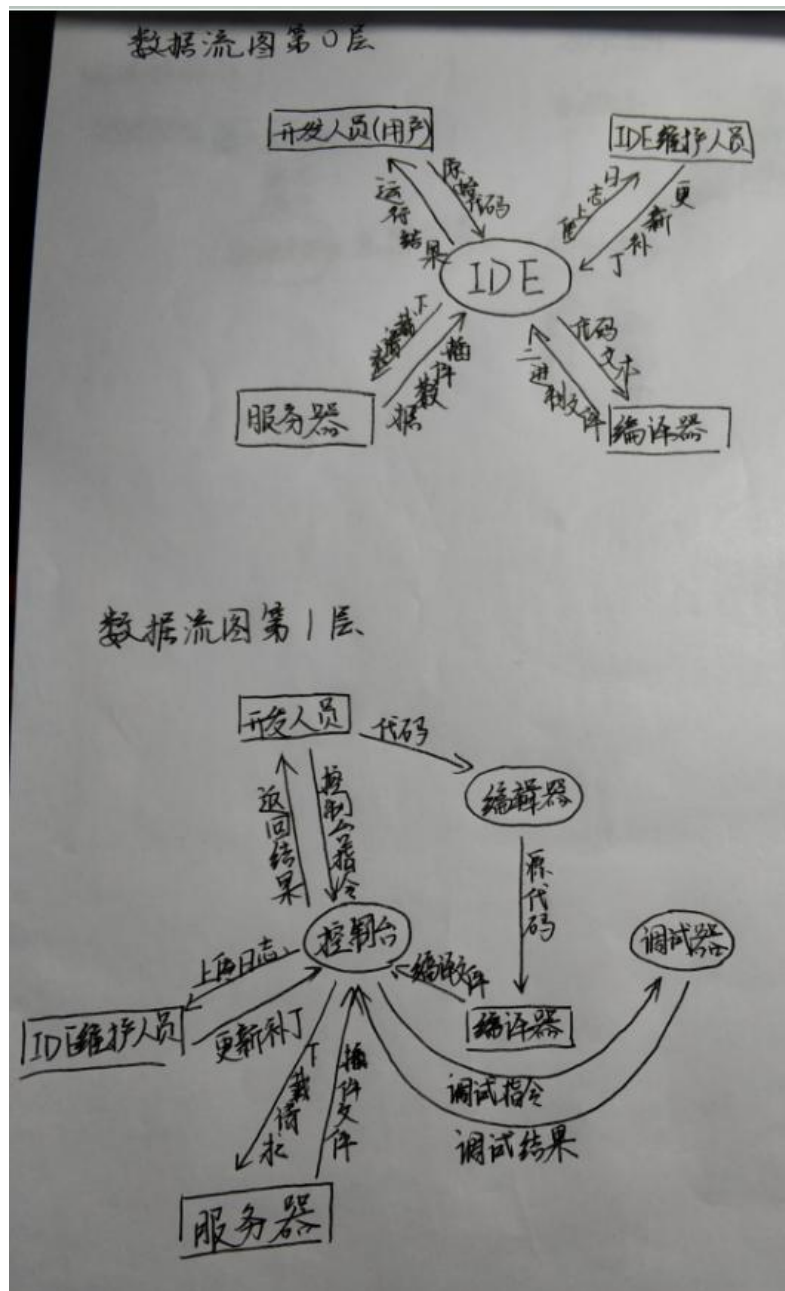 数据流图第0层
开发人员(用户)
IDE维护人员
运行结果
代码
日志
更新补丁
IDE
下载
插件数据
代码文本
二进制文件
服务器
编译器
数据流图第1层
开发人员
代码
编辑器
返回结果
控制台指令
源代码
控制台
调试器
上传日志
编译文件
IDE维护人员
更新补丁
编译器
下载请求
插件文件
调试指令
调试结果
服务器